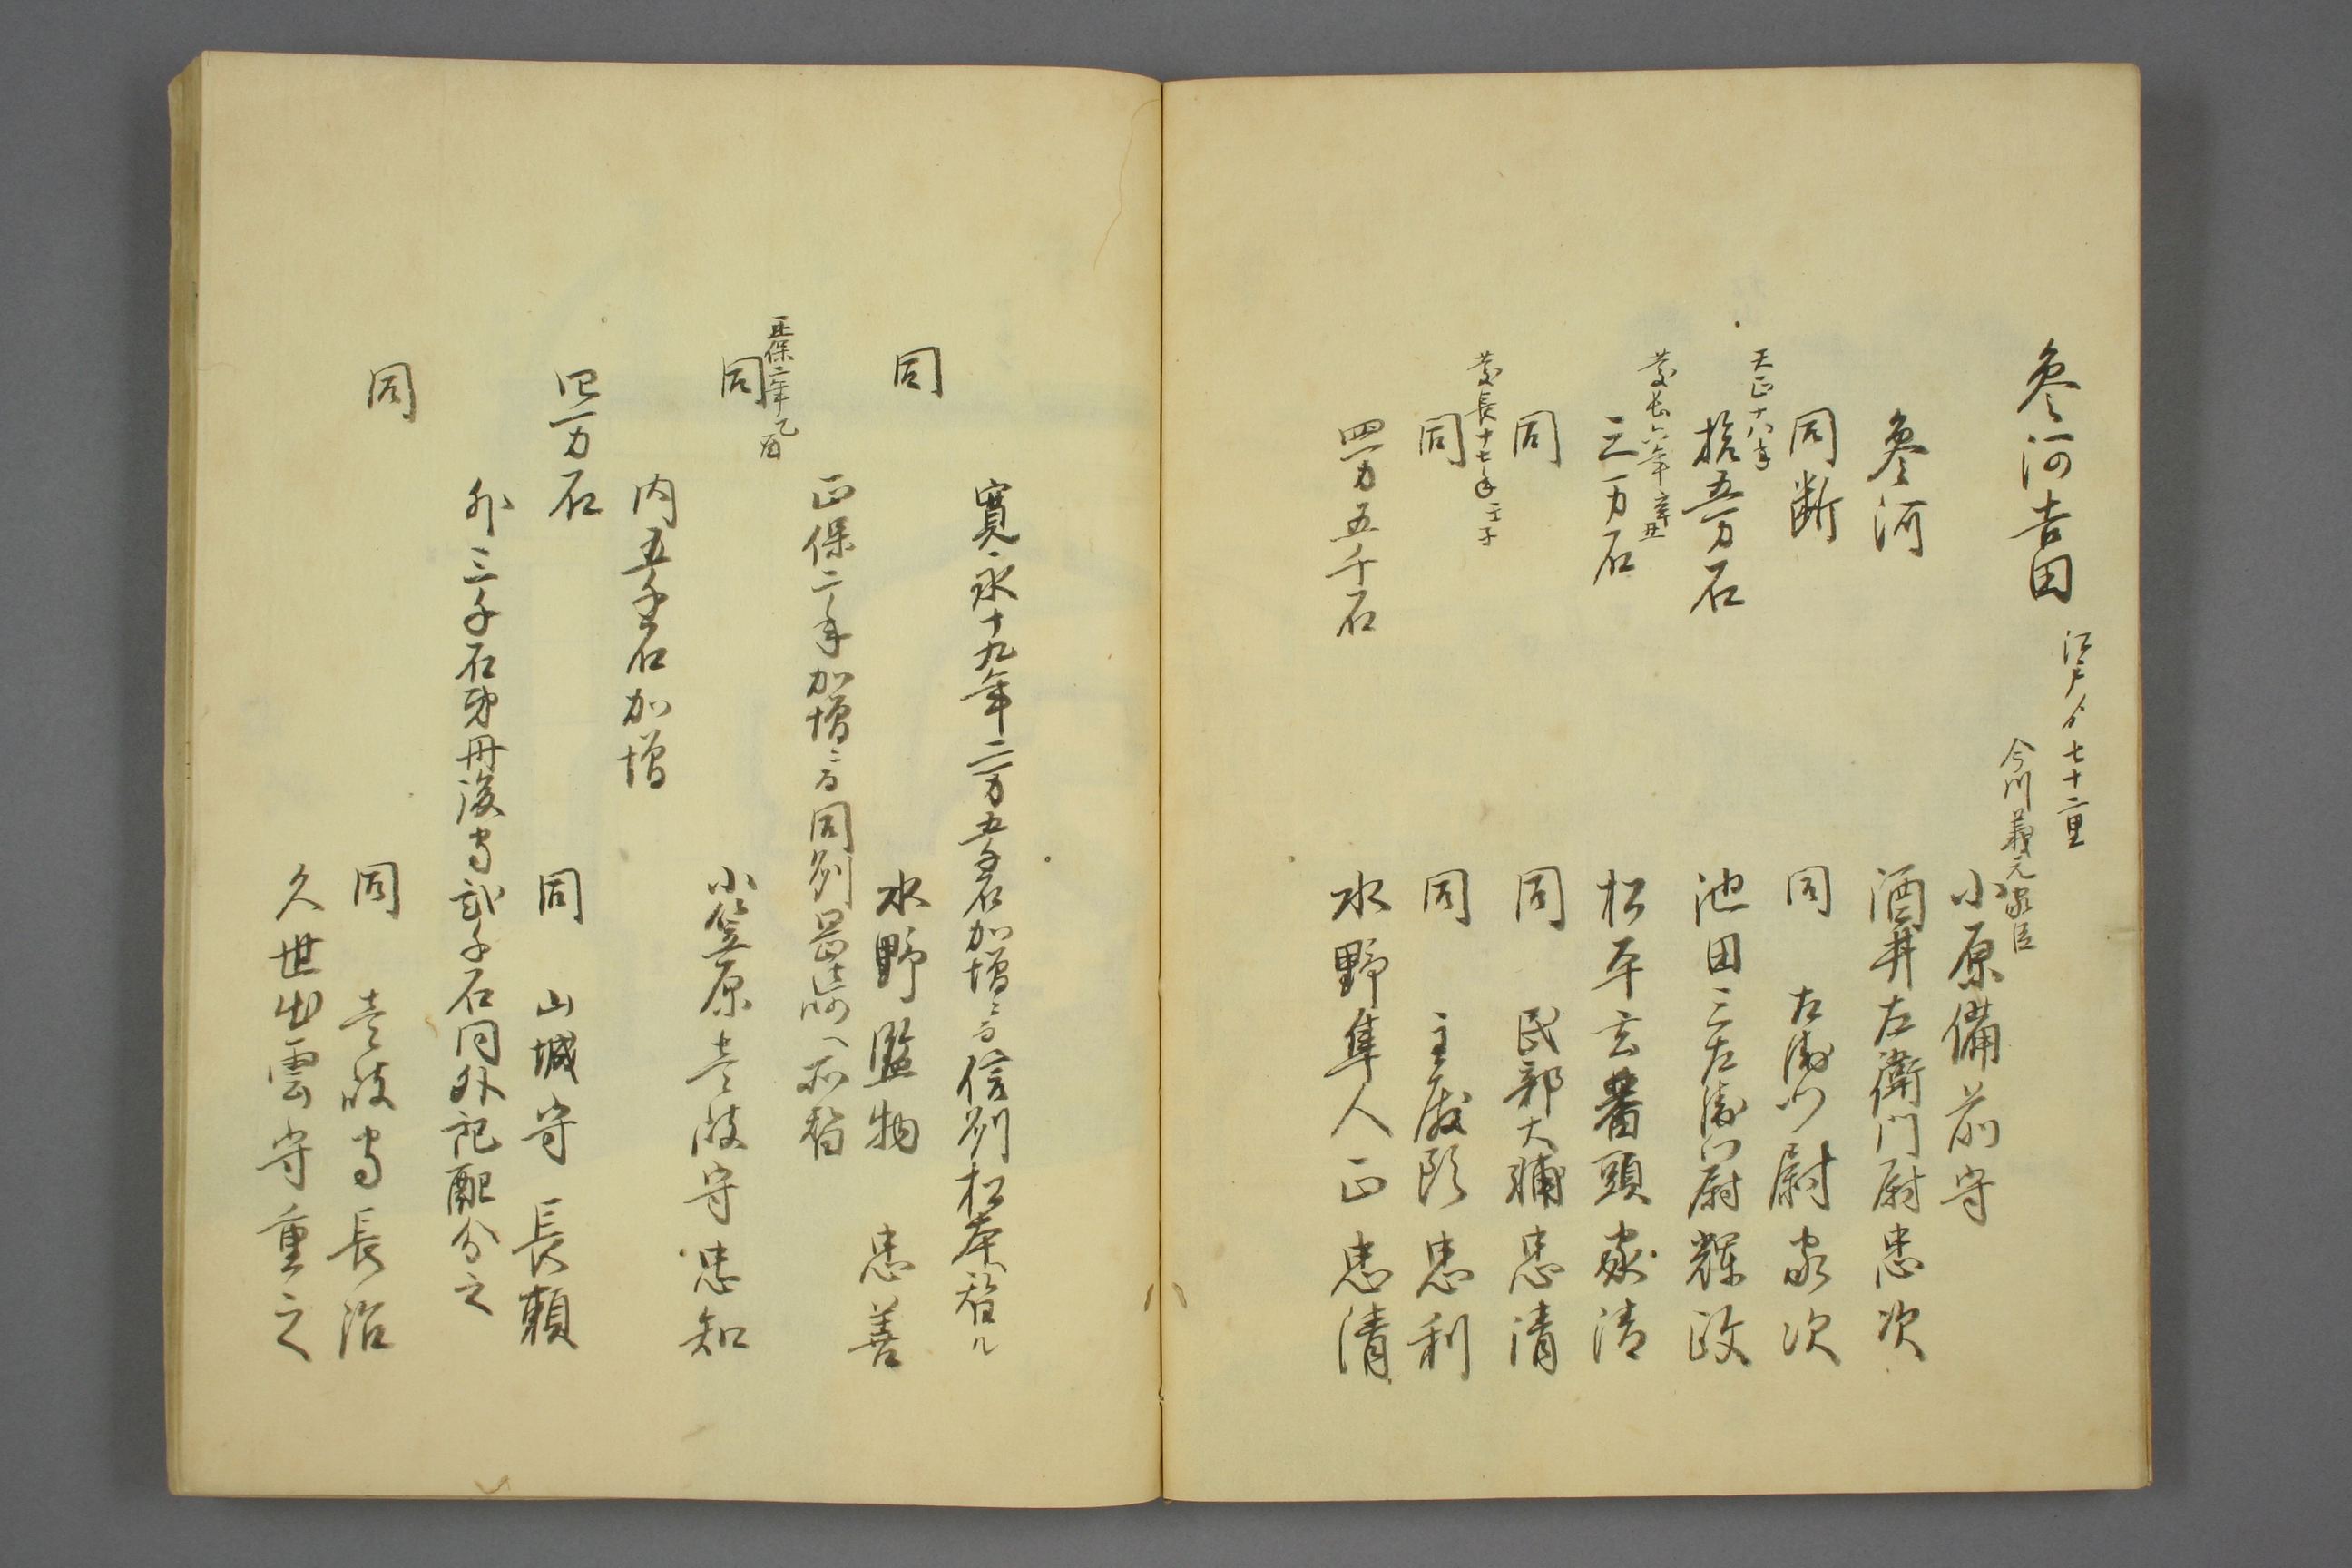 参河吉田 江戸ゟ七十二里
今川義元家臣
小原備前守
参河 酒井左衛門尉忠次
同断 同 左衛門尉家次
天正十八年
拾五万石 池田三左衛門尉輝政
慶長六年辛丑
三万石 松平玄蕃頭家清
同 同 民部大輔忠清
慶長十七年壬子
同 同 主殿頭忠利
四万五千石 水野隼人正忠清
寛永十九年二万五千石加増ニ而信州松本替ル
同 水野監物 忠善
正保二年加増ニ而同州岡崎へ所替
正保二年乙酉
同 小笠原壱岐守忠知
内五千石加増
四万石 同 山城守 長頼
外三千石弟丹後守弐千石同外記配分之
同 同 壱岐守長治
久世出雲守重之